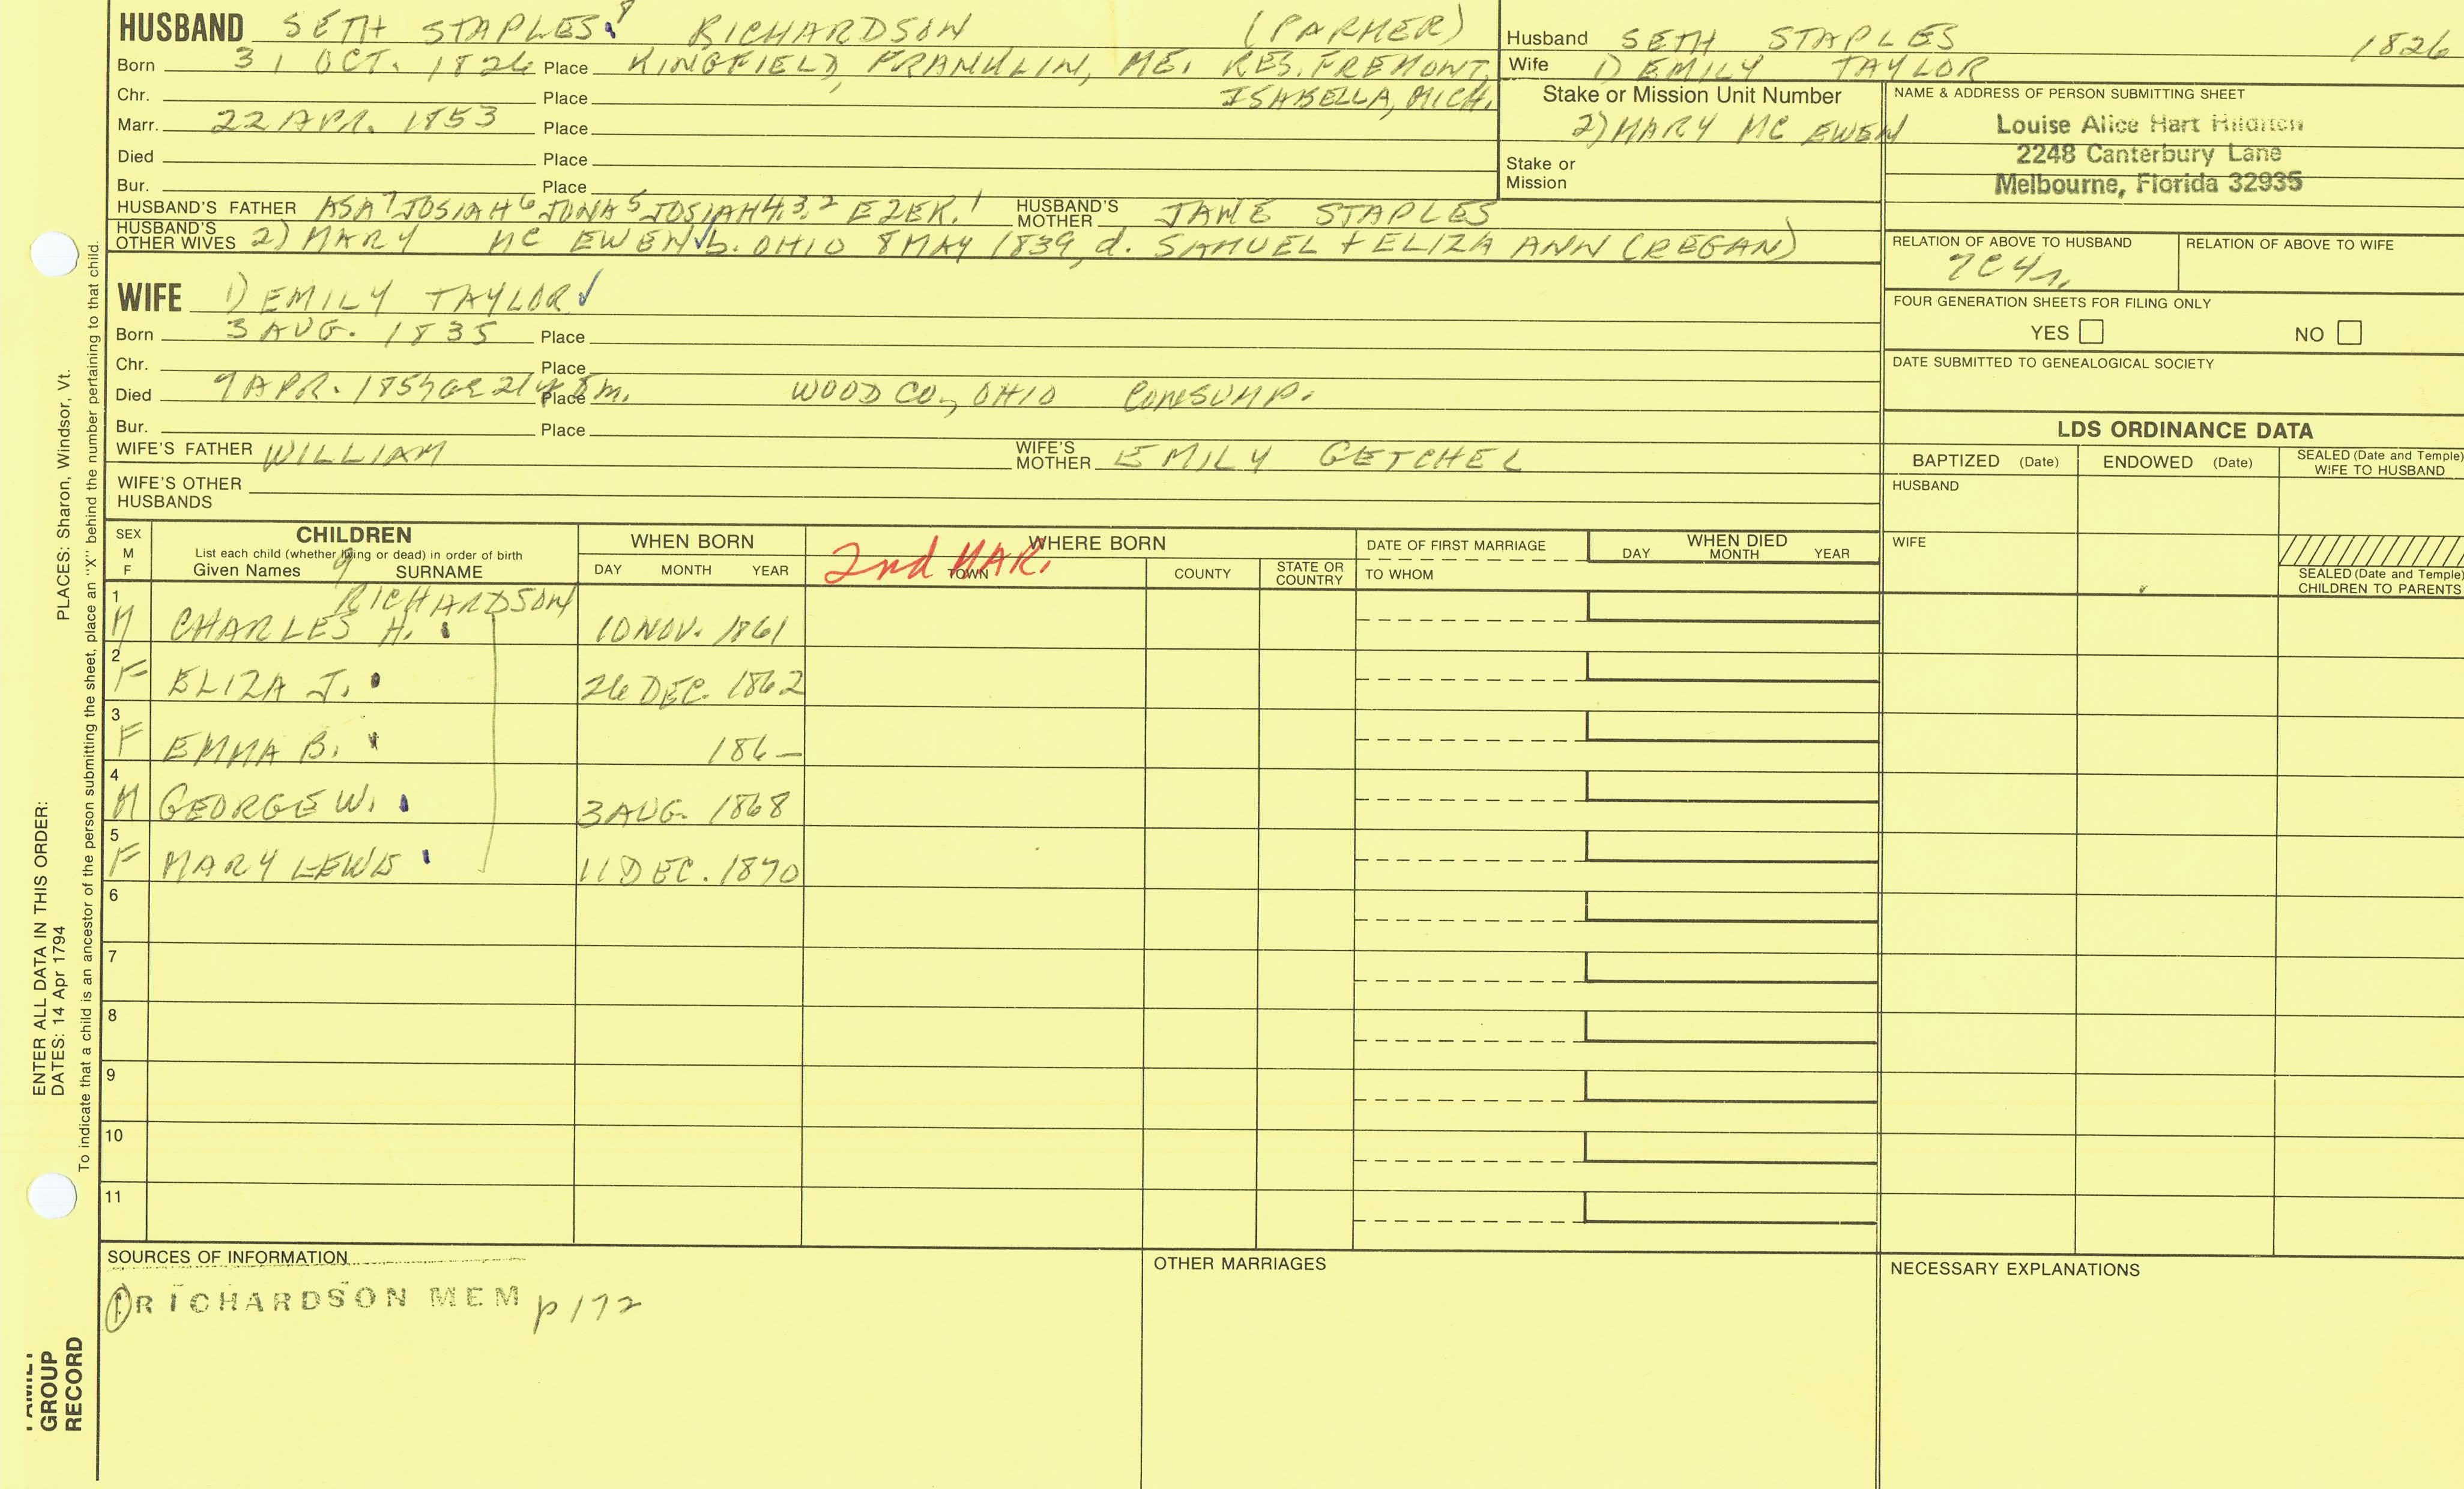 HUSBAND SETH STAPLES 8 RICHARDSON (FARMER)
Born 31 OCT. 1826 Place KINGFIELD, FRANKLIN, ME. RES. FREMONT,
Chr. Place ISABELLA, MICH.
Marr. 22 APR. 1853 Place
Died Place
Bur. Place
HUSBAND'S FATHER ASA 7 JOSIAH 6 JONA 5 JOSIAH 4,3,2 EZEK. 1 HUSBAND'S MOTHER JANE STAPLES
HUSBAND'S OTHER WIVES 2) MARY MC EWEN b. OHIO 8 MAY 1839, d. SAMUEL + ELIZA ANN (REGAN)
WIFE 1) EMILY TAYLOR
Born 3 AUG. 1835 Place
Chr. Place
Died 9 APR. 1857 ae 21y 8m. Place WOOD CO., OHIO CONSUMP.
Bur. Place
WIFE'S FATHER WILLIAM WIFE'S MOTHER EMILY GETCHEL
WIFE'S OTHER HUSBANDS
Husband SETH STAPLES 1826
Wife 1) EMILY TAYLOR
Stake or Mission Unit Number
2) MARY MC EWEN
Stake or Mission
NAME & ADDRESS OF PERSON SUBMITTING SHEET
Louise Alice Hart Hilditch
2248 Canterbury Lane
Melbourne, Florida 32935
RELATION OF ABOVE TO HUSBAND RELATION OF ABOVE TO WIFE
7C4r.
FOUR GENERATION SHEETS FOR FILING ONLY
YES NO
DATE SUBMITTED TO GENEALOGICAL SOCIETY
LDS ORDINANCE DATA
BAPTIZED (Date) ENDOWED (Date) SEALED (Date and Temple) WIFE TO HUSBAND
HUSBAND
WIFE
SEALED (Date and Temple) CHILDREN TO PARENTS
SEX M F
CHILDREN
List each child (whether living or dead) in order of birth
Given Names 9 SURNAME
WHEN BORN
DAY MONTH YEAR
WHERE BORN
2nd MAR.
TOWN COUNTY STATE OR COUNTRY
DATE OF FIRST MARRIAGE
TO WHOM
WHEN DIED
DAY MONTH YEAR
RICHARDSON
1 M CHARLES H. 10 NOV. 1861
2 F ELIZA J. 26 DEC. 1862
3 F EMMA B. 186–
4 M GEORGE W. 3 AUG. 1868
5 F MARY LEWIS 11 DEC. 1870
6
7
8
9
10
11
SOURCES OF INFORMATION
1 RICHARDSON MEM p 172
OTHER MARRIAGES
NECESSARY EXPLANATIONS
ENTER ALL DATA IN THIS ORDER:
DATES: 14 Apr 1794 PLACES: Sharon, Windsor, Vt.
To indicate that a child is an ancestor of the person submitting the sheet, place an "X" behind the number pertaining to that child.
FAMILY
GROUP
RECORD